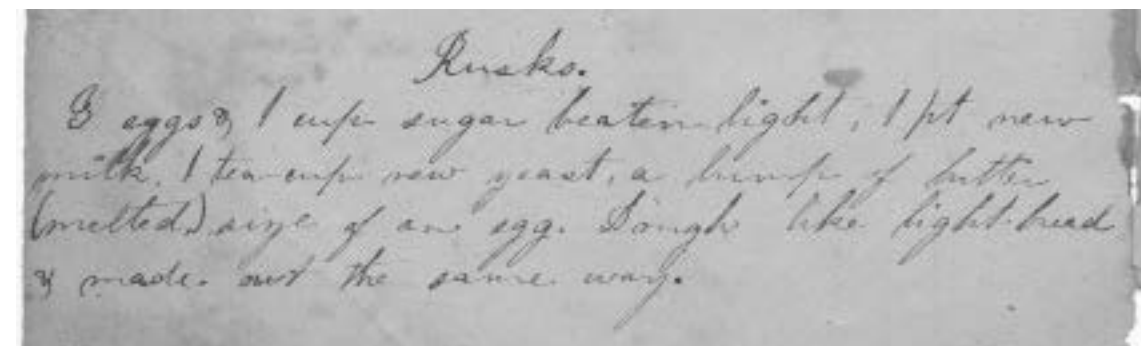 Rusks.
3 eggs & 1 cup sugar beaten light, 1 pt new
milk, 1 tea-cup new yeast, a lump of butter
(melted) size of an egg. Dough like light-bread
& made out the same way.